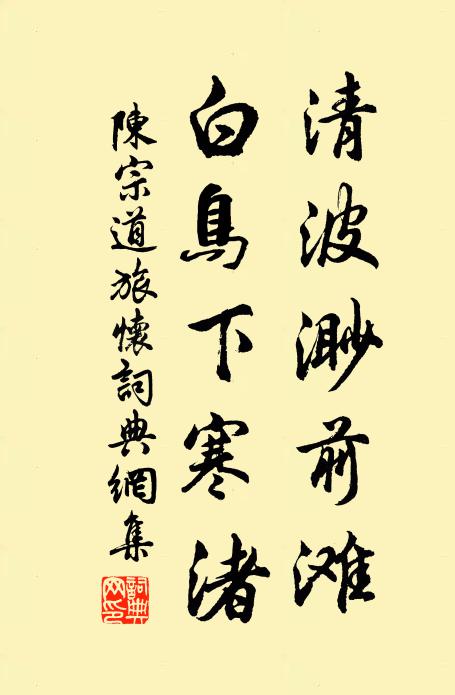 清波渺前滩
白鳥下寒渚
陳宗道旅懷詞典網集
詞典网印